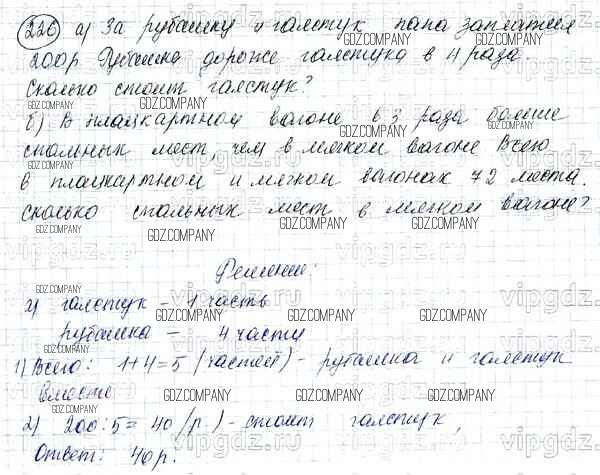 226 а) За рубашку и галстук папа заплатил
200р. Рубашка дороже галстука в 4 раза.
Сколько стоит галстук?
б) В плацкартном вагоне в 3 раза больше
спальных мест чем в мягком вагоне Всего
в плацкартном и мягком вагонах 72 места.
Сколько спальных мест в мягком вагоне?
Решение:
а) галстук – 1 часть
рубашка – 4 части
1) Всего: 1+4=5 (частей) - рубашка и галстук
вместе
2) 200:5= 40 (р.) - стоит галстук,
Ответ: 40р.